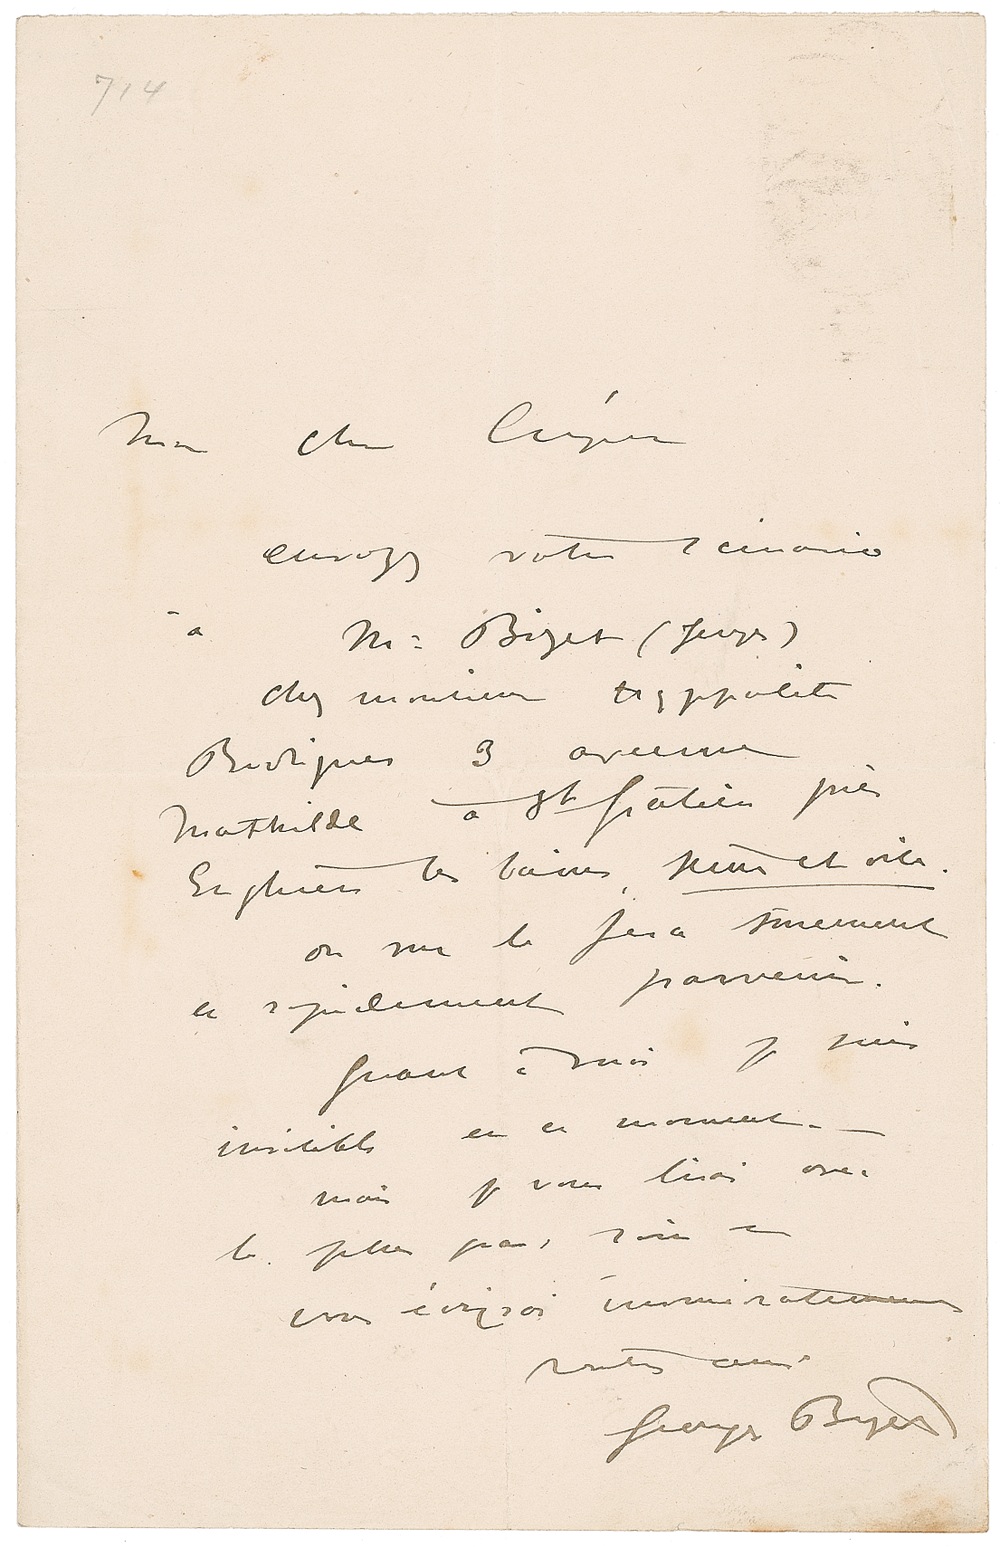 714
Mon cher Crépet
envoyez votre scenario
à Mr Bizet (Georges)
chez monsieur Hyppolite
Rodrigues 3 avenue
Mathilde à St Gratien près
Enghien les bains, et vite.
on me le fera surement
et rapidement parvenir.
Quant à moi je suis
invisible en ce moment. —
mais je vous lirai avec
le plus soin et
vous écrirai immédiatement
votre ami
Georges Bizet